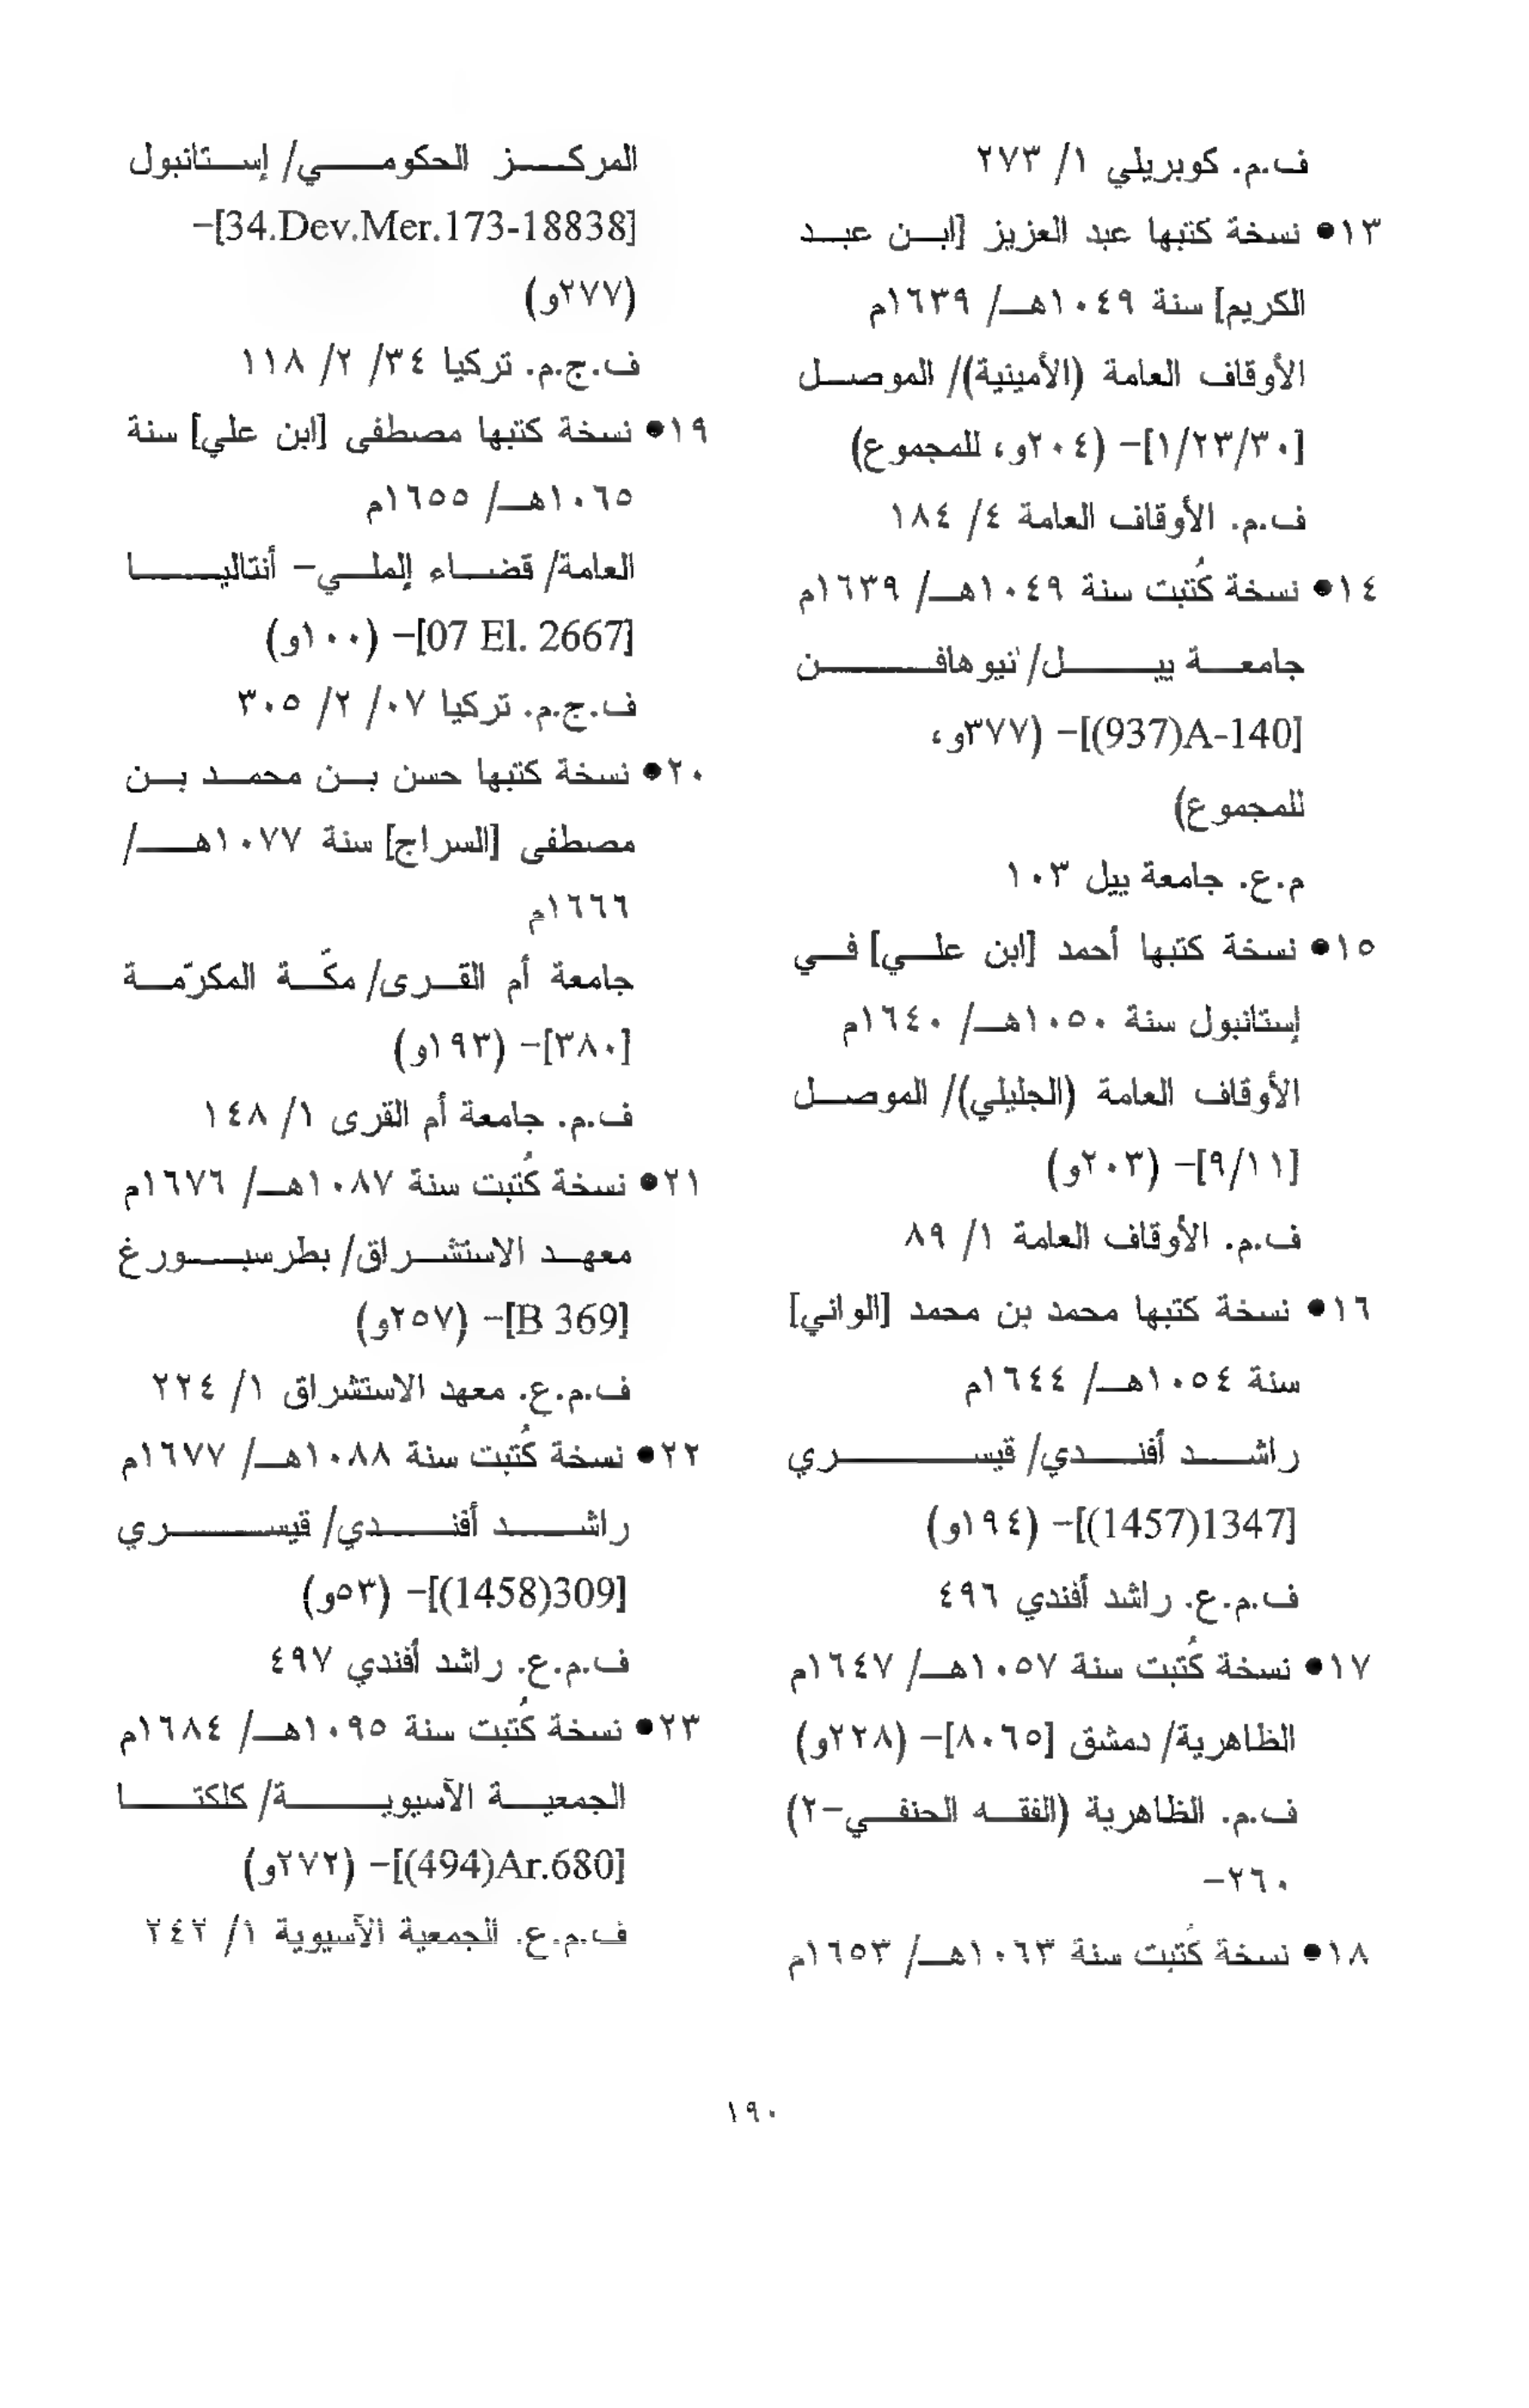 ف.م. كوبريلي ١/ ٢٧٣
١٣• نسخة كتبها عبد العزيز [ابن عبد
الكريم] سنة ١٠٤٩هـ/ ١٦٣٩م
الأوقاف العامة (الأمينية)/ الموصل
[١/٢٣/٣٠]- (٢٠٤و، للمجموع)
ف.م. الأوقاف العامة ٤/ ١٨٤
١٤• نسخة كُتبت سنة ١٠٤٩هـ/ ١٦٣٩م
جامعة ييل/ نيوهافن
[A-140(937)]- (٣٧٧و،
للمجموع)
م.ع. جامعة ييل ١٠٣
١٥• نسخة كتبها أحمد [ابن علي] في
إستانبول سنة ١٠٥٠هـ/ ١٦٤٠م
الأوقاف العامة (الجليلي)/ الموصل
[٩/١١]- (٢٠٣و)
ف.م. الأوقاف العامة ١/ ٨٩
١٦• نسخة كتبها محمد بن محمد [الواني]
سنة ١٠٥٤هـ/ ١٦٤٤م
راشد أفندي/ قيسري
[1347(1457)]- (١٩٤و)
ف.م.ع. راشد أفندي ٤٩٦
١٧• نسخة كُتبت سنة ١٠٥٧هـ/ ١٦٤٧م
الظاهرية/ دمشق [٨٠٦٥]- (٢٢٨و)
ف.م. الظاهرية (الفقه الحنفي-٢)
٢٦٠-
١٨• نسخة كُتبت سنة ١٠٦٣هـ/ ١٦٥٣م
المركز الحكومي/ إستانبول
[34.Dev.Mer.173-18838]-
(٢٧٧و)
ف.ج.م. تركيا ٣٤/ ٢/ ١١٨
١٩• نسخة كتبها مصطفى [ابن علي] سنة
١٠٦٥هـ/ ١٦٥٥م
العامة/ قضاء إلملي- أنتاليا
[07 El. 2667]- (١٠٠و)
ف.ج.م. تركيا ٠٧/ ٢/ ٣٠٥
٢٠• نسخة كتبها حسن بن محمد بن
مصطفى [السراج] سنة ١٠٧٧هـ/
١٦٦٦م
جامعة أم القرى/ مكّة المكرّمة
[٣٨٠]- (١٩٣و)
ف.م. جامعة أم القرى ١/ ١٤٨
٢١• نسخة كُتبت سنة ١٠٨٧هـ/ ١٦٧٦م
معهد الاستشراق/ بطرسبورغ
[B 369]- (٢٥٧و)
ف.م.ع. معهد الاستشراق ١/ ٢٢٤
٢٢• نسخة كُتبت سنة ١٠٨٨هـ/ ١٦٧٧م
راشد أفندي/ قيسري
[309(1458)]- (٥٣و)
ف.م.ع. راشد أفندي ٤٩٧
٢٣• نسخة كُتبت سنة ١٠٩٥هـ/ ١٦٨٤م
الجمعية الآسيوية/ كلكتا
[Ar.680(494)]- (٢٧٢و)
ف.م.ع. الجمعية الآسيوية ١/ ٢٤٢
١٩٠